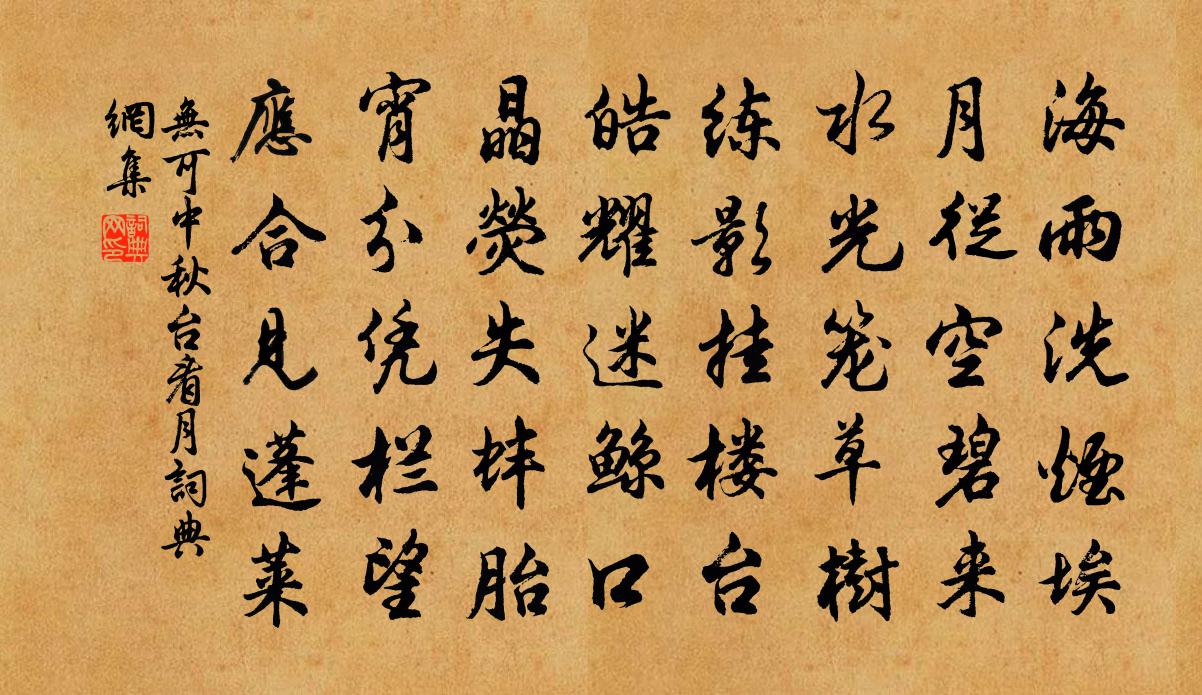 海雨洗煙埃
月從空碧来
水光笼草樹
练影挂楼台
皓耀迷鲸口
晶熒失蚌胎
宵分凭栏望
應合見蓬萊
無可中秋台看月詞典
網集
詞典
网印